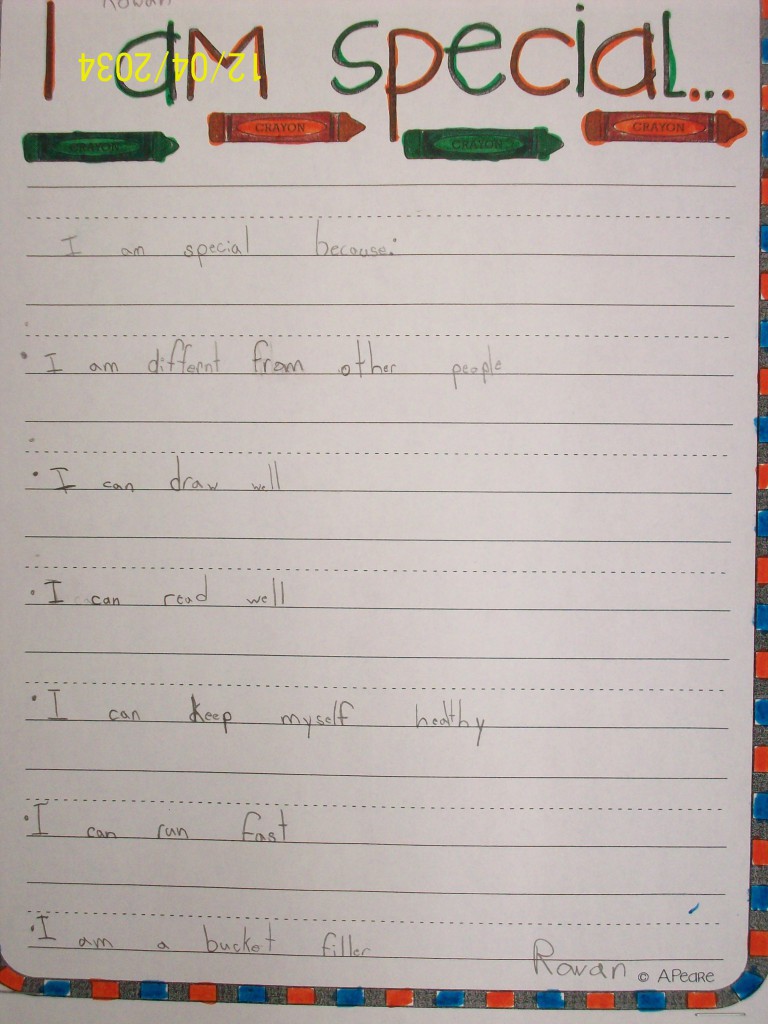 Rowan
I am special...
12/04/2034
CRAYON CRAYON CRAYON CRAYON
I am special because:
• I am differnt from other people
• I can draw well
• I can read well
• I can keep myself healthy
• I can run fast
• I am a bucket filler
Rowan © APeaRe